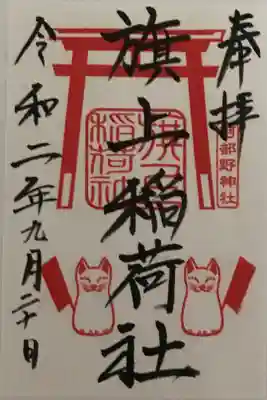 奉拝
阿部野神社
旗上稲荷社
令和二年九月二十日